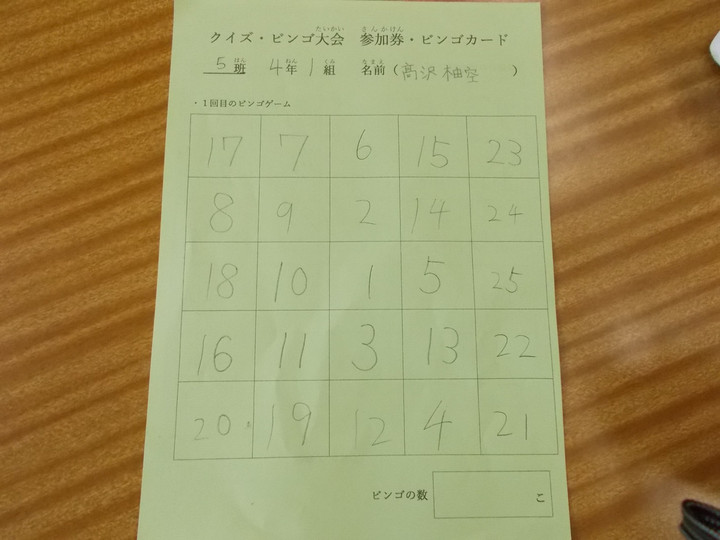 クイズ・ビンゴ大会 参加券・ビンゴカード
5班 4年1組 名前(高沢柚空)
・1回目のビンゴゲーム
17 7 6 15 23
8 9 2 14 24
18 10 1 5 25
16 11 3 13 22
20 19 12 4 21
ビンゴの数 こ